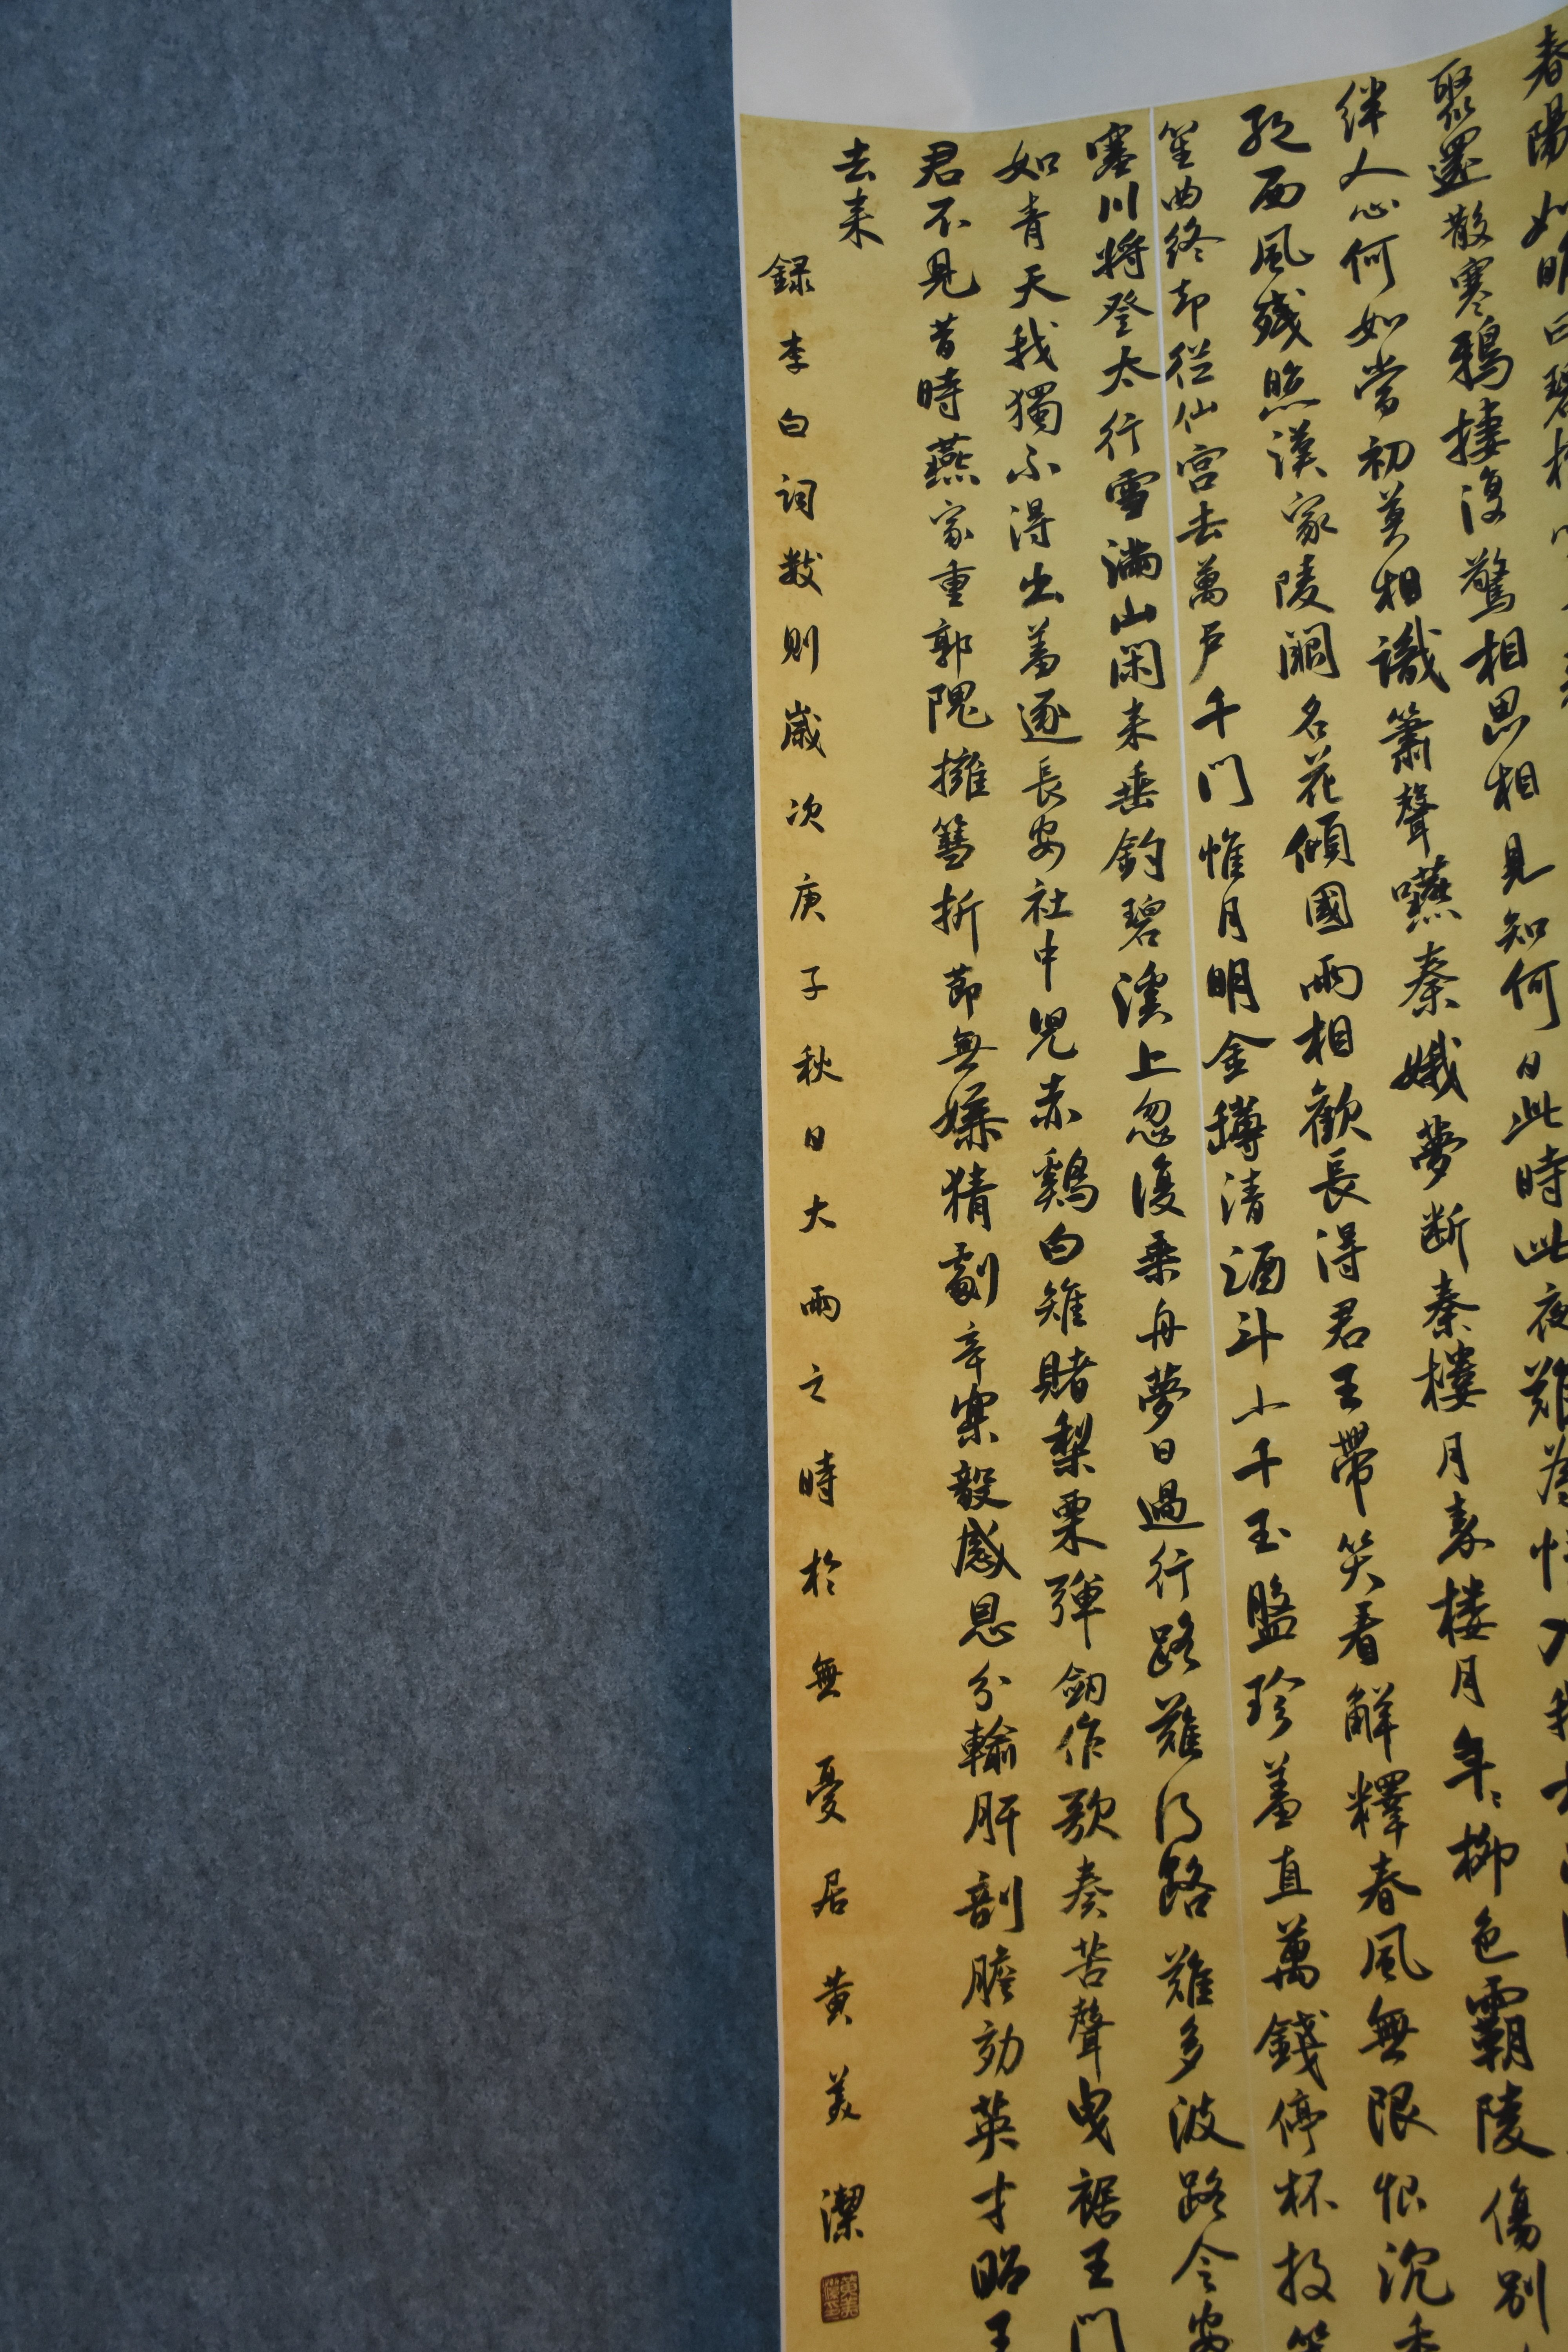 春陽如
聚還散寒鴉棲復驚相思相見知何日此時此夜難為情入我
絆人心何如當初莫相識簫聲嚥秦娥夢斷秦樓月秦樓月年々柳色霸陵傷別
絕西風殘照漢家陵闕名花傾國兩相歡長得君王帶笑看解釋春風無限恨沉香
笙曲終却從仙宮去萬戶千門惟月明金罇清酒斗小千玉盤珍羞直萬錢停杯投箸
塞川將登太行雪滿山閑来垂釣碧溪上忽復乘舟夢日過行路難行路難多波路今安
如青天我獨不得出羞逐長安社中兒赤鷄白雉賭梨栗彈劍作歌奏苦聲曳裾王門
君不見昔時燕家重郭隗擁篲折節無嫌猜劇辛樂毅感恩分輸肝剖膽効英才昭王
去来
録李白詞數則歲次庚子秋日大雨之時於無憂居黄美潔